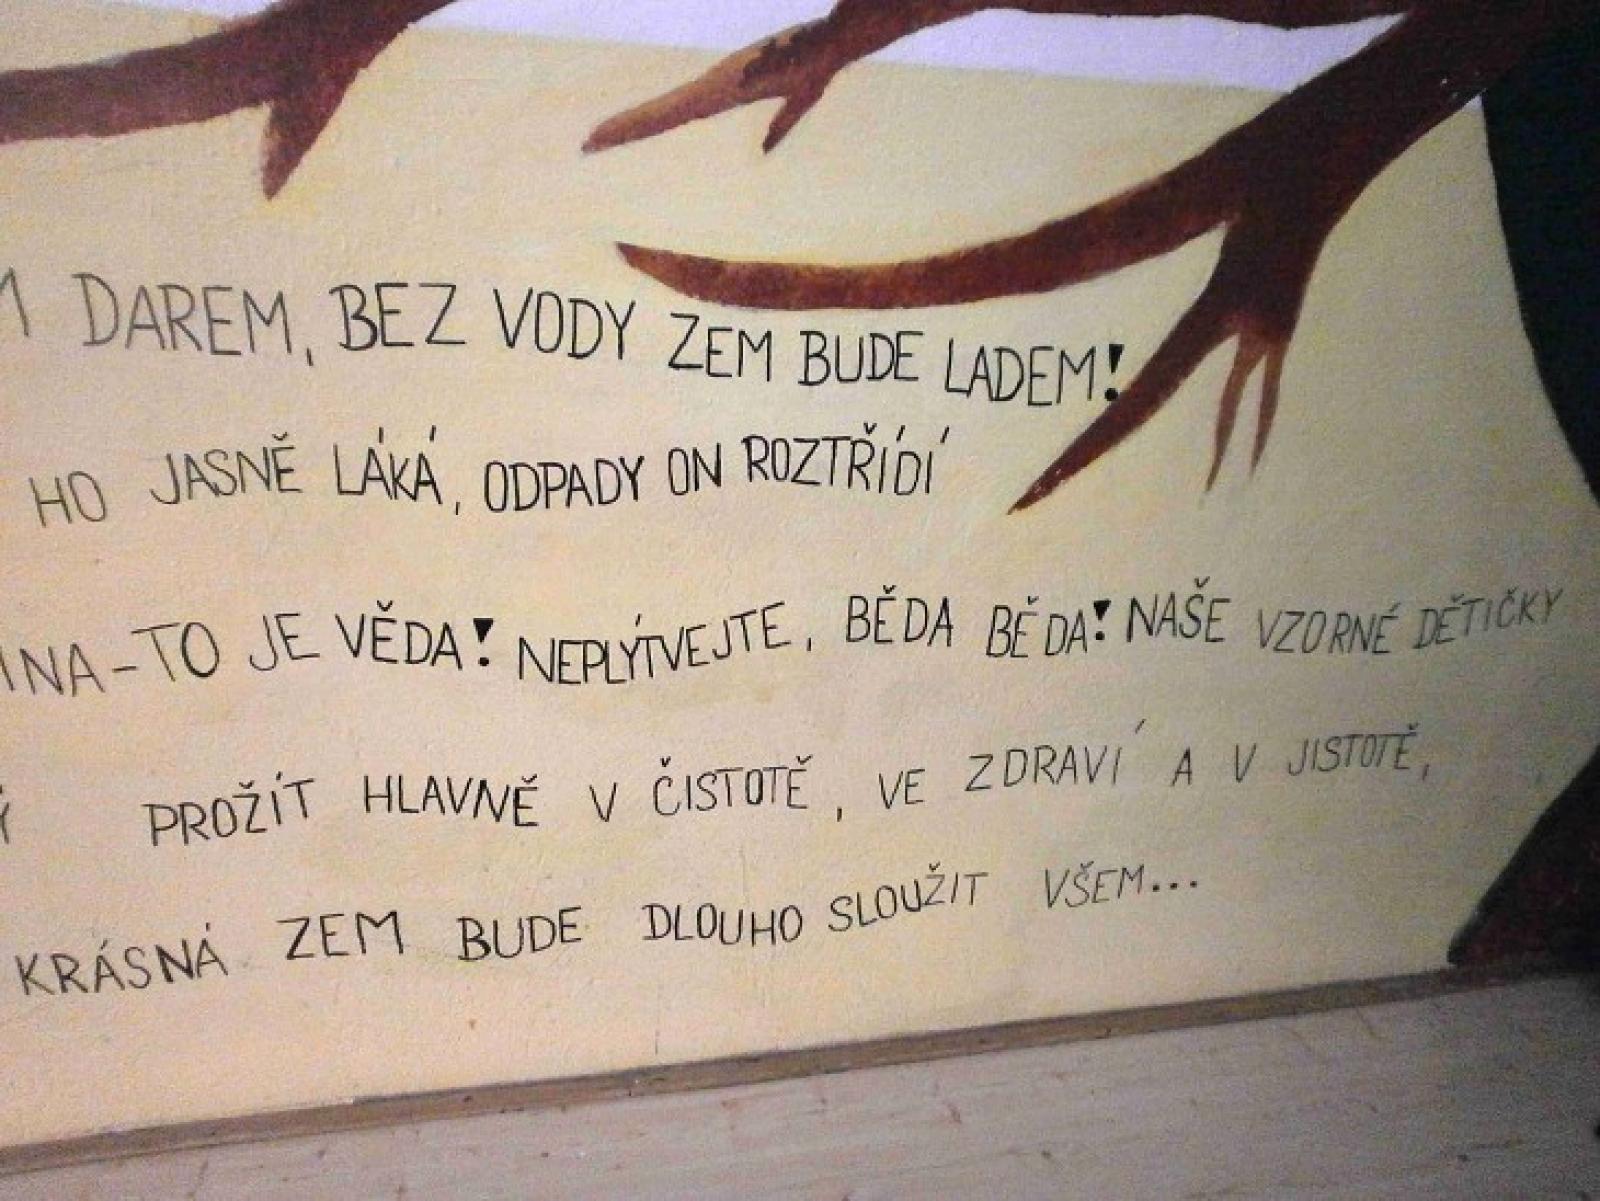 DAREM, BEZ VODY ZEM BUDE LADEM!
HO JASNĚ LÁKÁ, ODPADY ON ROZTŘÍDÍ
INA-TO JE VĚDA! NEPLÝTVEJTE, BĚDA BĚDA! NAŠE VZORNÉ DĚTIČKY
PROŽÍT HLAVNĚ V ČISTOTĚ, VE ZDRAVÍ A V JISTOTĚ,
KRÁSNÁ ZEM BUDE DLOUHO SLOUŽIT VŠEM...